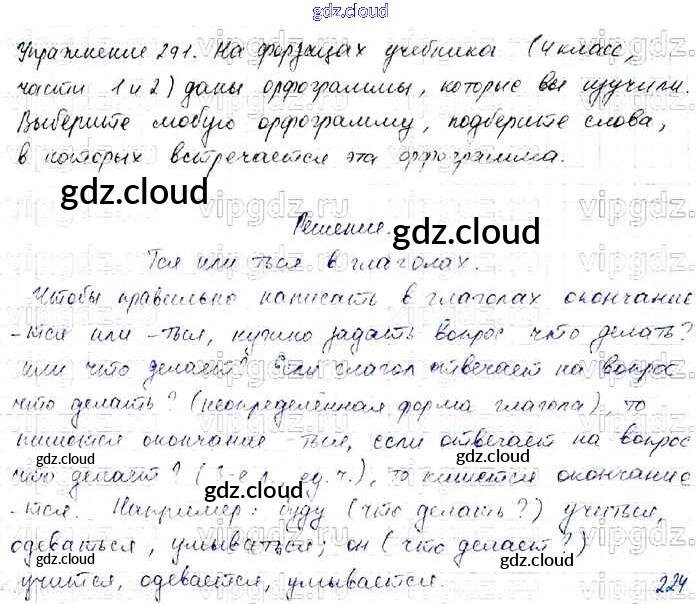 gdz.cloud
Упражнение 291. На форзацах учебника (4 класс,
части 1 и 2) даны орфограммы, которые вы изучили.
Выберите любую орфограмму, подберите слова,
в которых встречается эта орфограмма.
gdz.cloud
Решение.
gdz.cloud
Тся или ться в глаголах.
Чтобы правильно написать в глаголах окончание
-тся или -ться, нужно задать вопрос что делать?
или что делает? Если глагол отвечает на вопрос
что делать? (неопределённая форма глагола), то
пишется окончание -ться, если отвечает на вопрос
gdz.cloud gdz.cloud
что делает? (3-е л. ед. ч.), то пишется окончание
-тся. Например: буду (что делать?) учиться,
gdz.cloud
одеваться, умываться; он (что делает?)
gdz.cloud
учится, одевается, умывается.
224